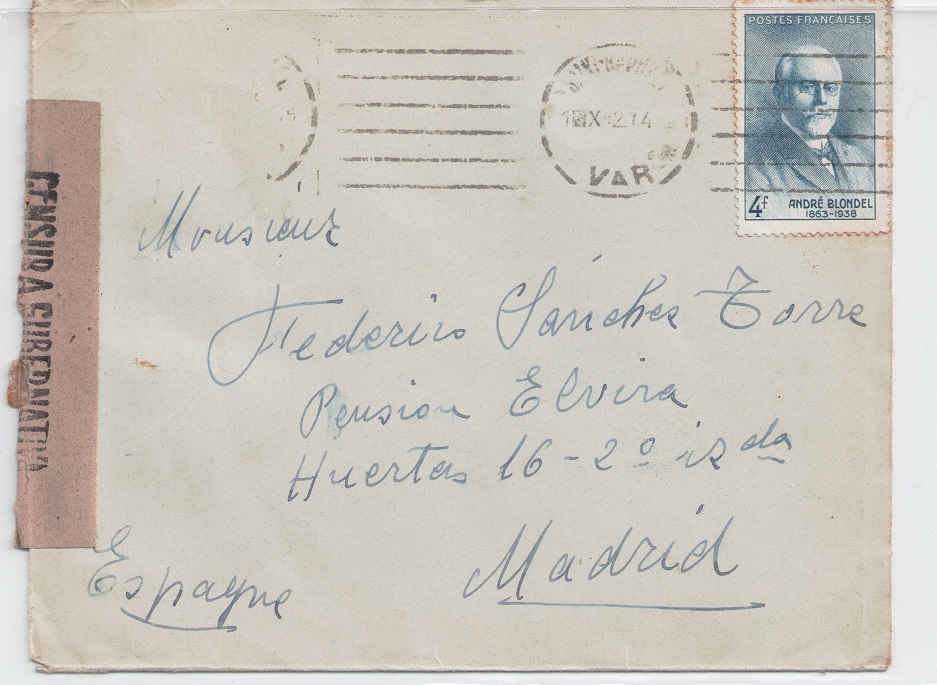 POSTES FRANÇAISES
4f ANDRÉ BLONDEL
1863-1938
VAR
CENSURA GUBERNATIVA
Monsieur
Federico Sánches Torre
Pension Elvira
Huertas 16-2º izda
Madrid
Espagne